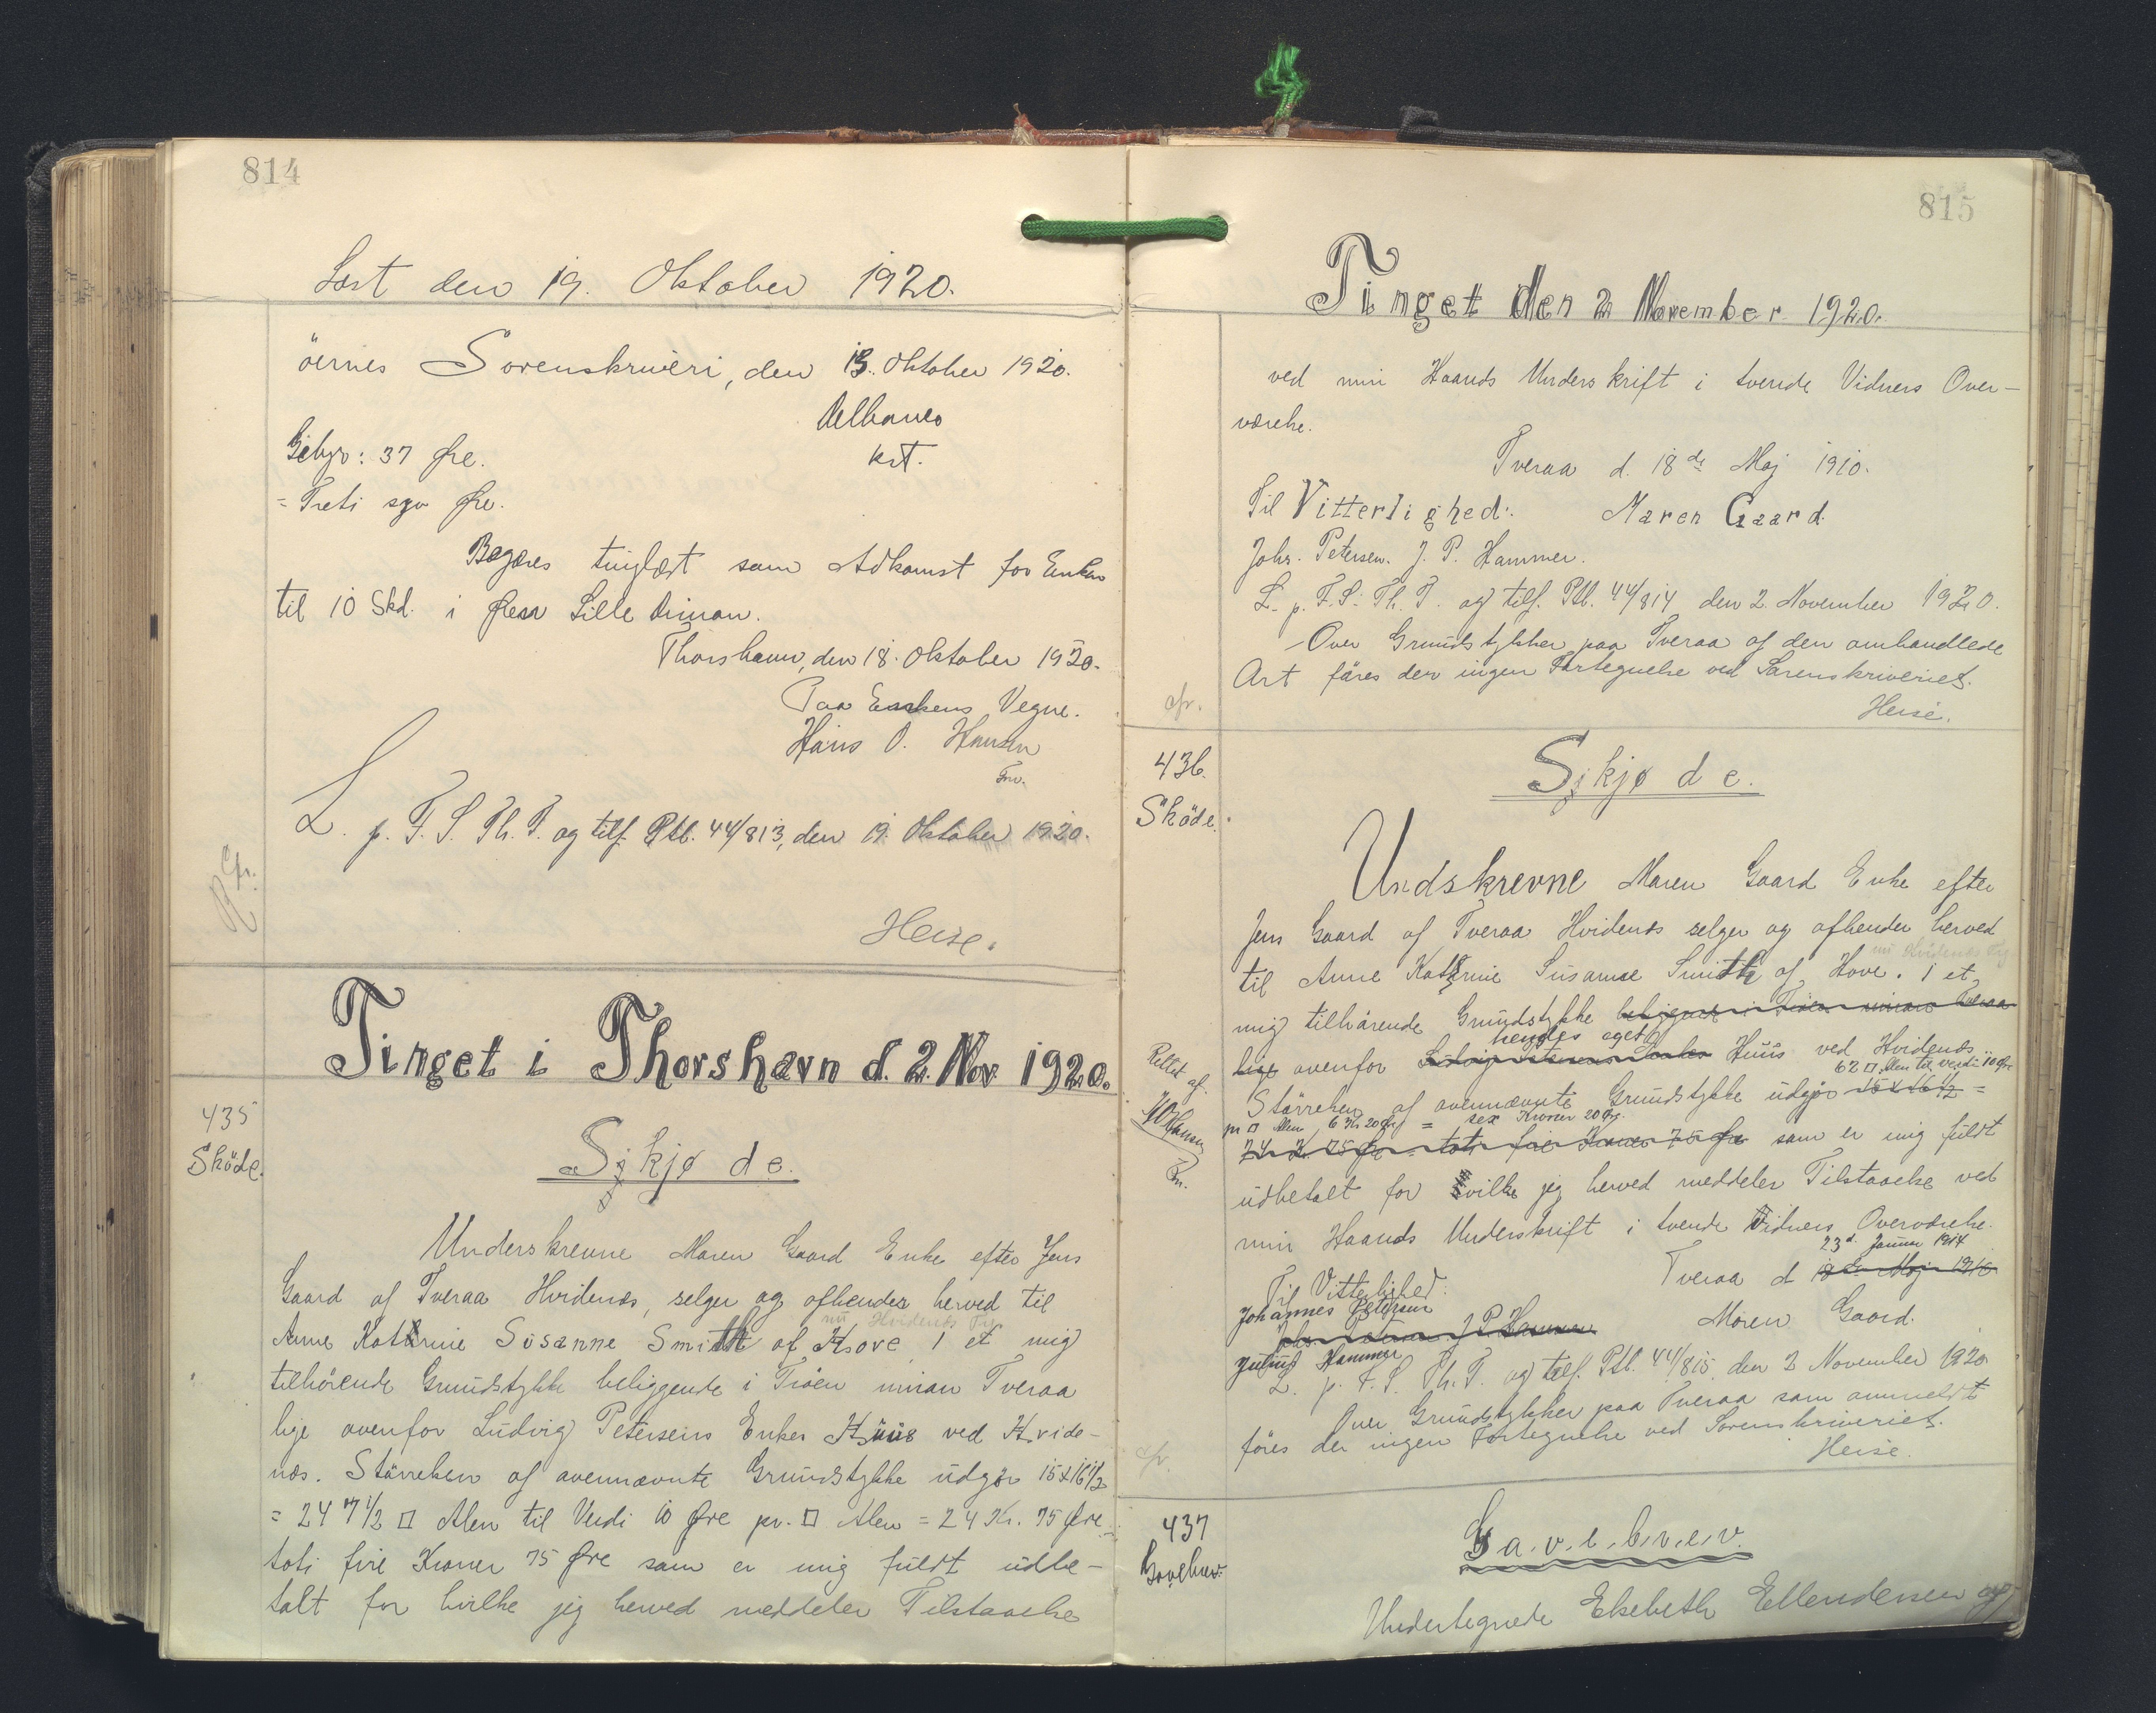 814
Læst den 19. Oktober 1920.
öernes Sorenskriveri, den 18. Oktober 1920.
kst.
Gebyr: 37 Øre.
= Treti syv Øre.
Begæres tinglæst som Adkomst for Enken
til 10 Skd. i Øen Lille Dimon.
Thorshavn, den 18. Oktober 1920.
Paa Enkens Vegne.
Hans O. Hansen
Fm.
L. p. F. S. Th. T. og tilf. Ptb. 44/813, den 19. Oktober 1920.
Cfr.
Heise.
Tinget i Thorshavn d. 2. Nov. 1920.
435
Sköde.
Skjøde.
Underskrevne Maren Gaard Enke efter Jens
Gaard af Tveraa Hvidenæs, selger og afhender herved til
nu Hvidenæs
Anne Katrine Susanne Smith af Hove 1 et mig
tilhörende Grundstykke beliggende i Tröen innan Tveraa
lige ovenfor Ludvig Petersens Enkes Huus ved Hvide-
næs. Störrelsen af ovennævnte Grundstykke udgjör 15x16 1/2
= 247 1/2 □ Alen til Verdi 10 Øre pr. □ Alen = 24 Kr. 75 Øre
toti fire Kroner 75 Øre som er mig fuldt udbe-
talt for hvilke jeg herved meddeler Tilstaaelse
815
Tinget den 2 November 1920.
ved min Haands Underskrift i tvende Vidners Over-
værelse.
Tveraa d. 18de Maj 1910.
Til Vitterlighed: Maren Gaard.
Johs. Petersen. J. P. Hammer.
L. p. F. S. Th. T. og tilf. Ptb. 44/814 den 2. November 1920.
Over Grundstykker paa Tveraa af den omhandlede
Art föres der ingen Fortegnelse ved Sorenskriveriet.
cfr.
Heise.
436.
Sköde.
Skjøde.
Undskrevne Maren Gaard Enke efter
Jens Gaard af Tveraa Hvidenæs selger og afhender herved
nu Hvidenæs
til Anne Katrine Susanne Smith af Hove. 1 et
mig tilhörende Grundstykke beliggende i Tröen innan Tveraa
hendes eget
lige ovenfor Ludvig Petersens Enkes Huus ved Hvidenæs
62 □ Alen til verdi 10 Øre
Rettet af.
Störrelsen af ovennævnte Grundstykke udgjör 15x16 1/2 =
pr □ Alen 6 Kr 20 Øre = sex Kroner 20 Øre.
Hansen
24 K. 75 Øre toti fire Kroner 75 Øre som er mig fuldt
Fm.
udbetalt for hvilke jeg herved meddeler Tilstaaelse ved
min Haands Underskrift i tvende Vidners Overværelse.
23d. Januar 1914
Tveraa d 18de Maj 1910
Til Vitterlighed.
Johannes Petersen
Johs. Petersen J. P. Hammer
Maren Gaard.
Julius Hammer
L. p. F. S. Th. T. og tilf. Ptb. 44/815, den 2 November 1920
Over Grundstykker paa Tveraa som anmeldt
föres der ingen Fortegnelse ved Sorenskriveriet.
cfr.
Heise.
437
Gavebrev.
Gavebrev.
Undertegnede Elsebeth Ellendersen af